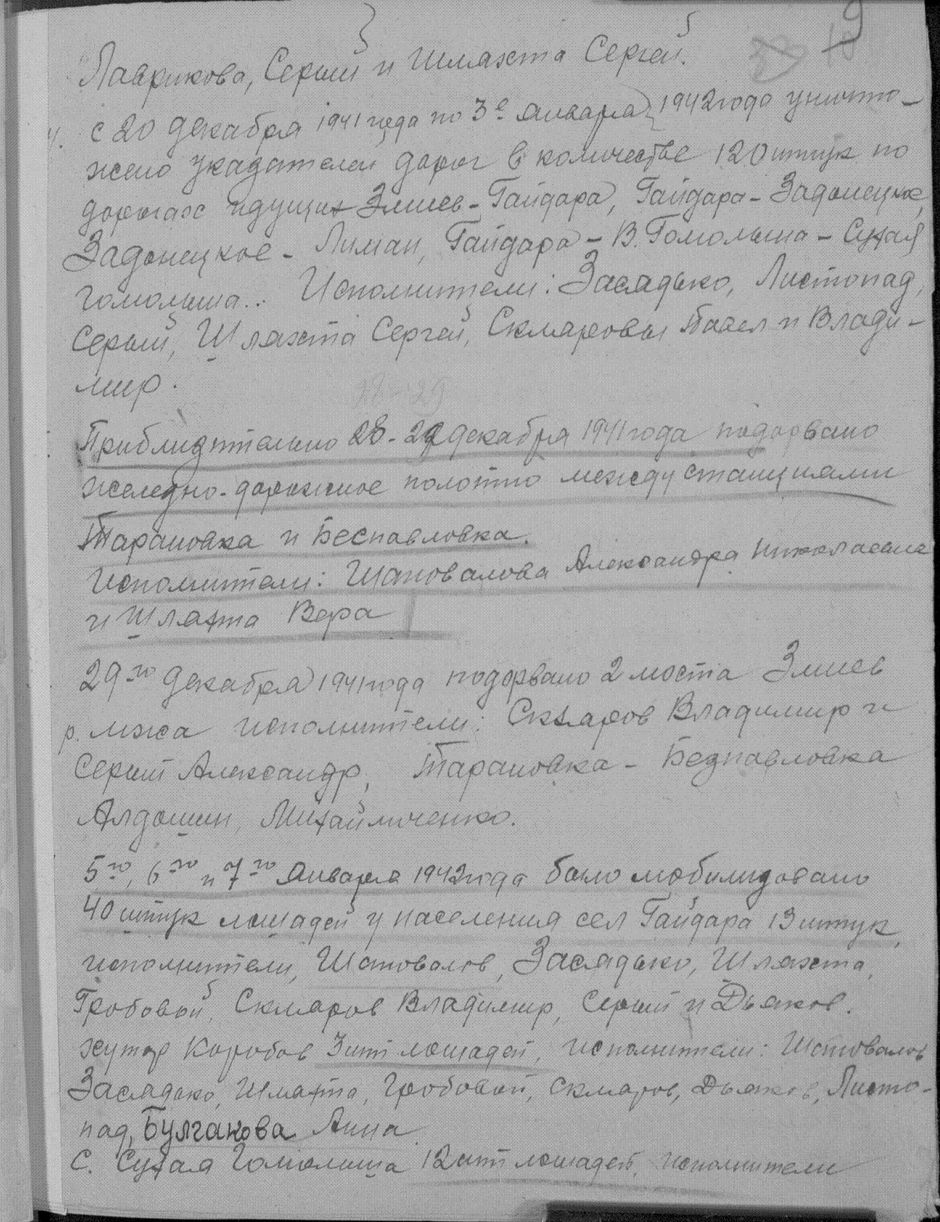 9
Лаврикова, Серый и Шляхта Сергей.
с 20 декабря 1941 года по 3е января 1942 года уничто-
жено указателей дорог в количестве 120 штук по
дорогах идущих Змиев-Гайдара, Гайдара-Задонецкое,
Задонецкое - Лиман, Гайдара - В. Гомольша - Сухая
Гомольша.. Исполнители: Засядько, Листопад,
Серый, Шляхта Сергей, Скляровы Павел и Влади-
мир.
28-29
Приблизительно 28-29 декабря 1941 года подорвано
железно-дорожное полотно между станциями
Тарановка и Беспавловка.
Исполнители: Шаповалова Александра Николаевна
и Шляхта Вера
29го декабря 1941 года подорвано 2 моста Змиев
р. мжа исполнители: Скляров Владимир и
Серый Александр, Тарановка - Безпавловка
Алдошин, Михайличенко.
5го, 6го и 7го января 1942 года было мобилизовано
40 штук лошадей у населения сел Гайдара 13 штук,
исполнители, Шаповалов, Засядько, Шляхта,
Гробовой, Скляров Владимир, Серый и Дьяков.
хутор Коробов 3 шт лошадей, исполнители: Шаповалов
Засядько, Шляхта, Гробовой, Скляров, Дьяков, Листо-
пад, Булгакова Анна
с. Сухая Гомольша 12 шт лошадей, исполнители